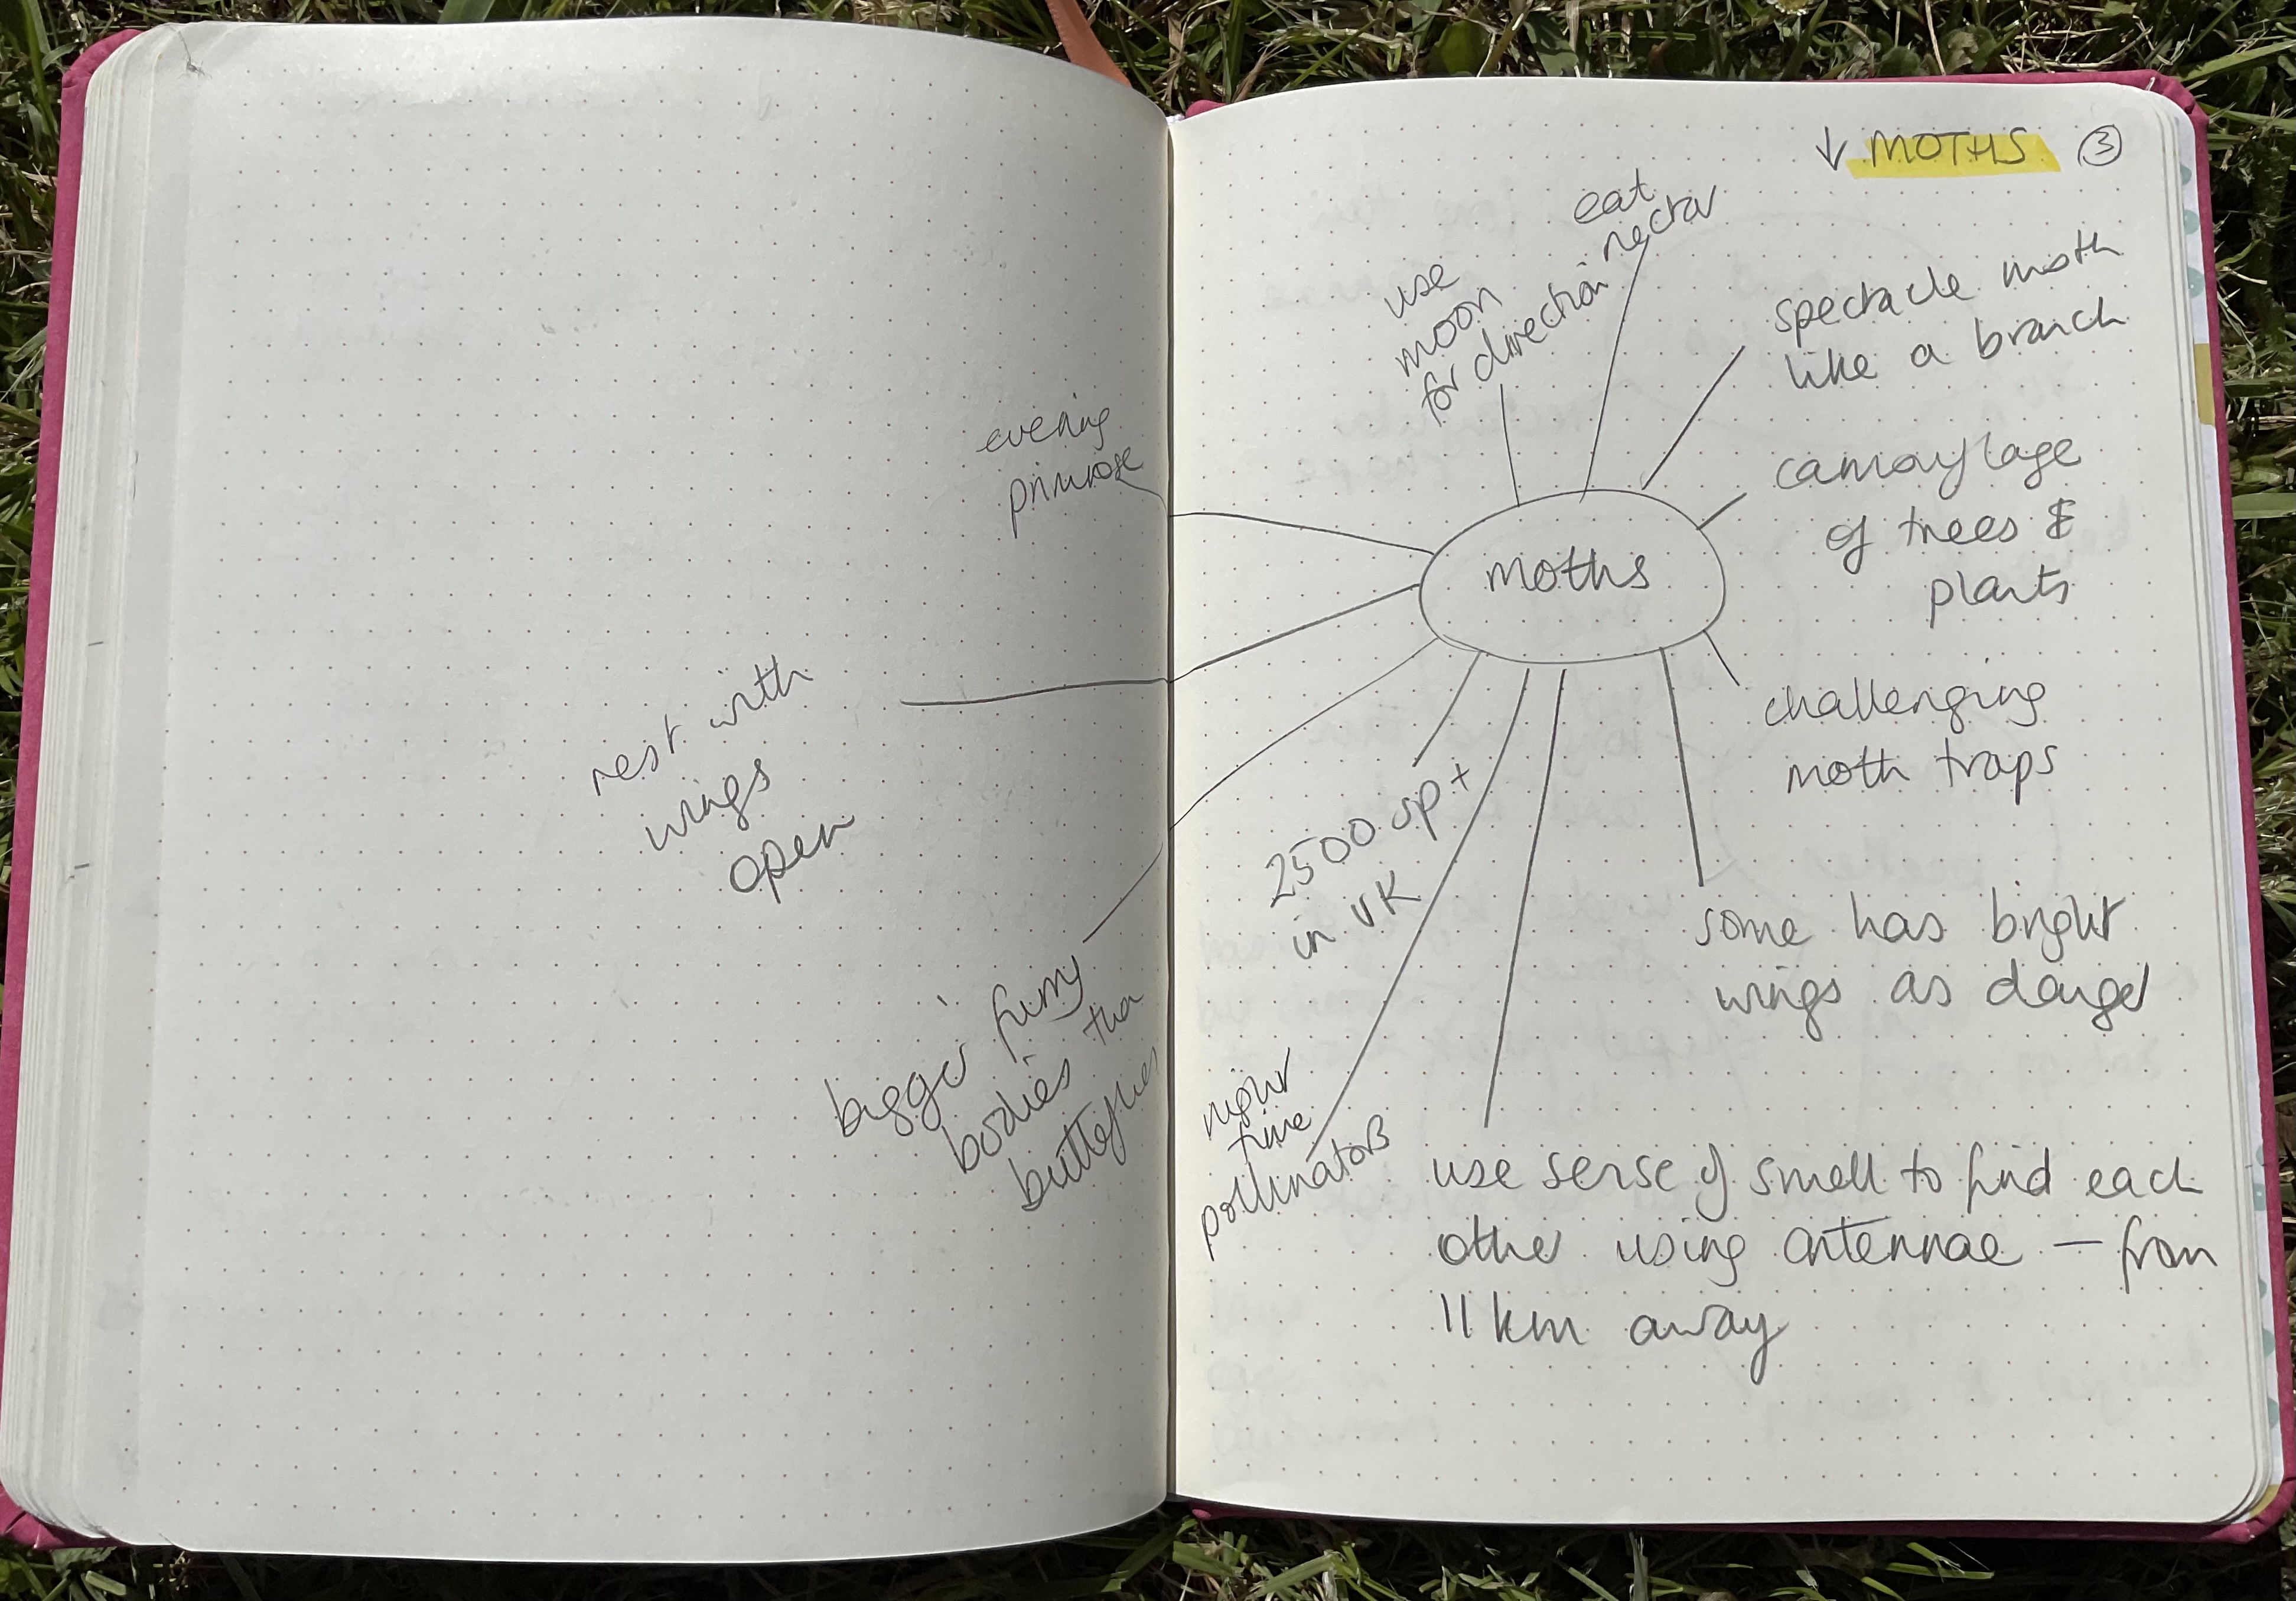 ↓ MOTHS ③
eat
nectar
use
moon
for direction
spectacle moth
like a branch
camouflage
of trees &
plants
challenging
moth traps
moths
some has bright
wings as danger
use sense of smell to find each
other using antennae — from
11km away
night
time
pollinators
2500 sp+
in UK
bigger furry
bodies than
butterflies
rest with
wings
open
evening
primrose